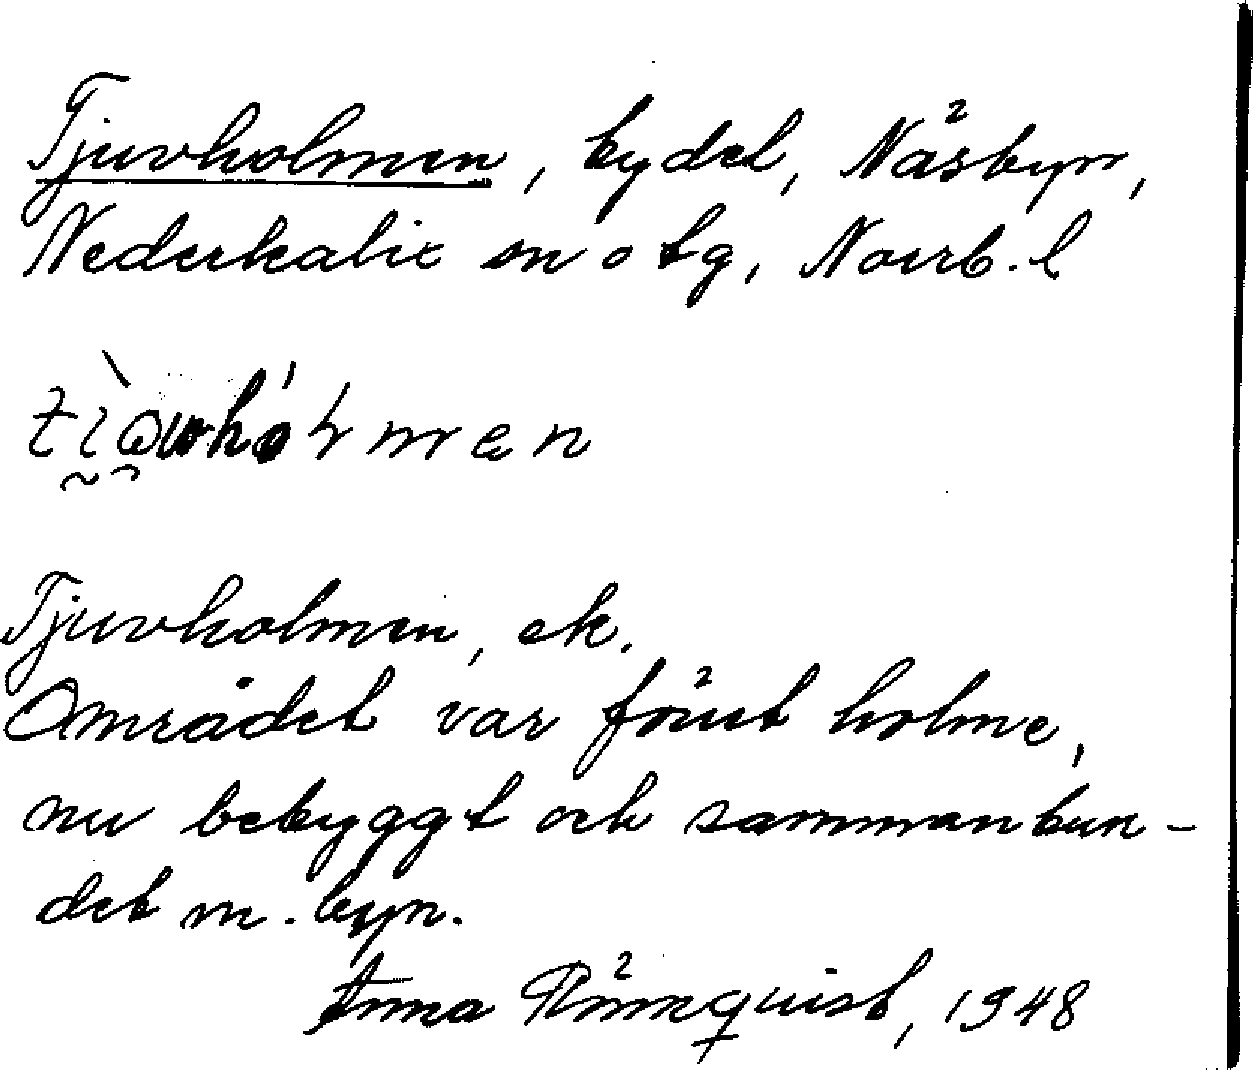 Tjuvholmen, bydel, Näsbyn,
Nederkalix sn o tg, Norrb. l
Tjuvholmen, ek.
Området var först holme,
nu bebyggt och sammanbun-
det m. byn.
Anna Rönnquist, 1948